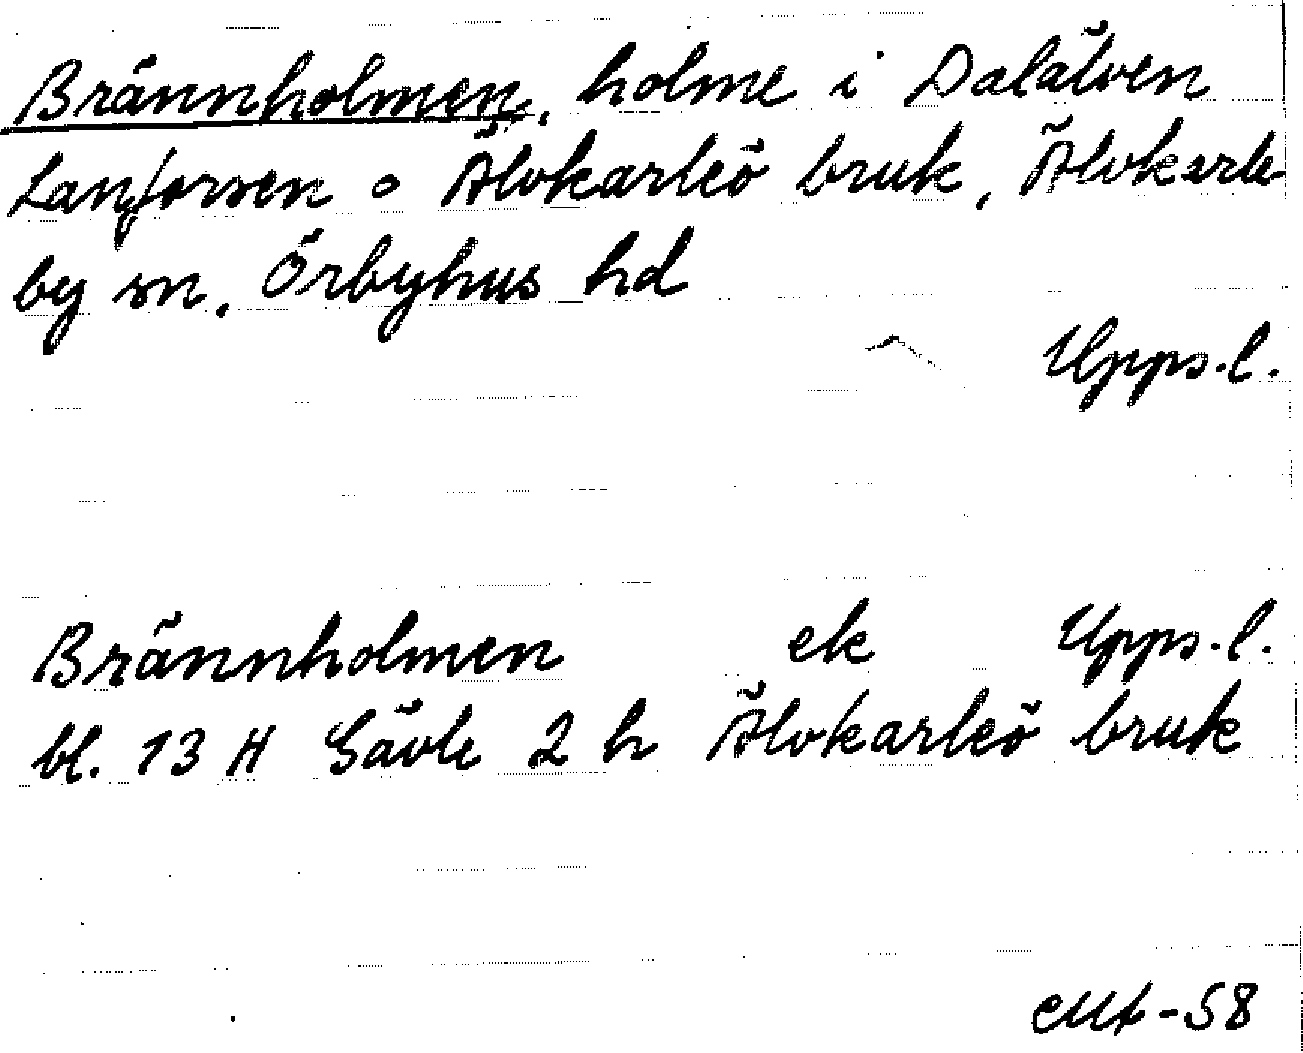 Brännholmen, holme i Dalälven
Lanforsen o Älvkarleö bruk, Älvkarle-
by sn, Örbyhus hd
Upps.l.
Brännholmen ek Upps.l.
bl. 13 H Gävle 2 h Älvkarleö bruk